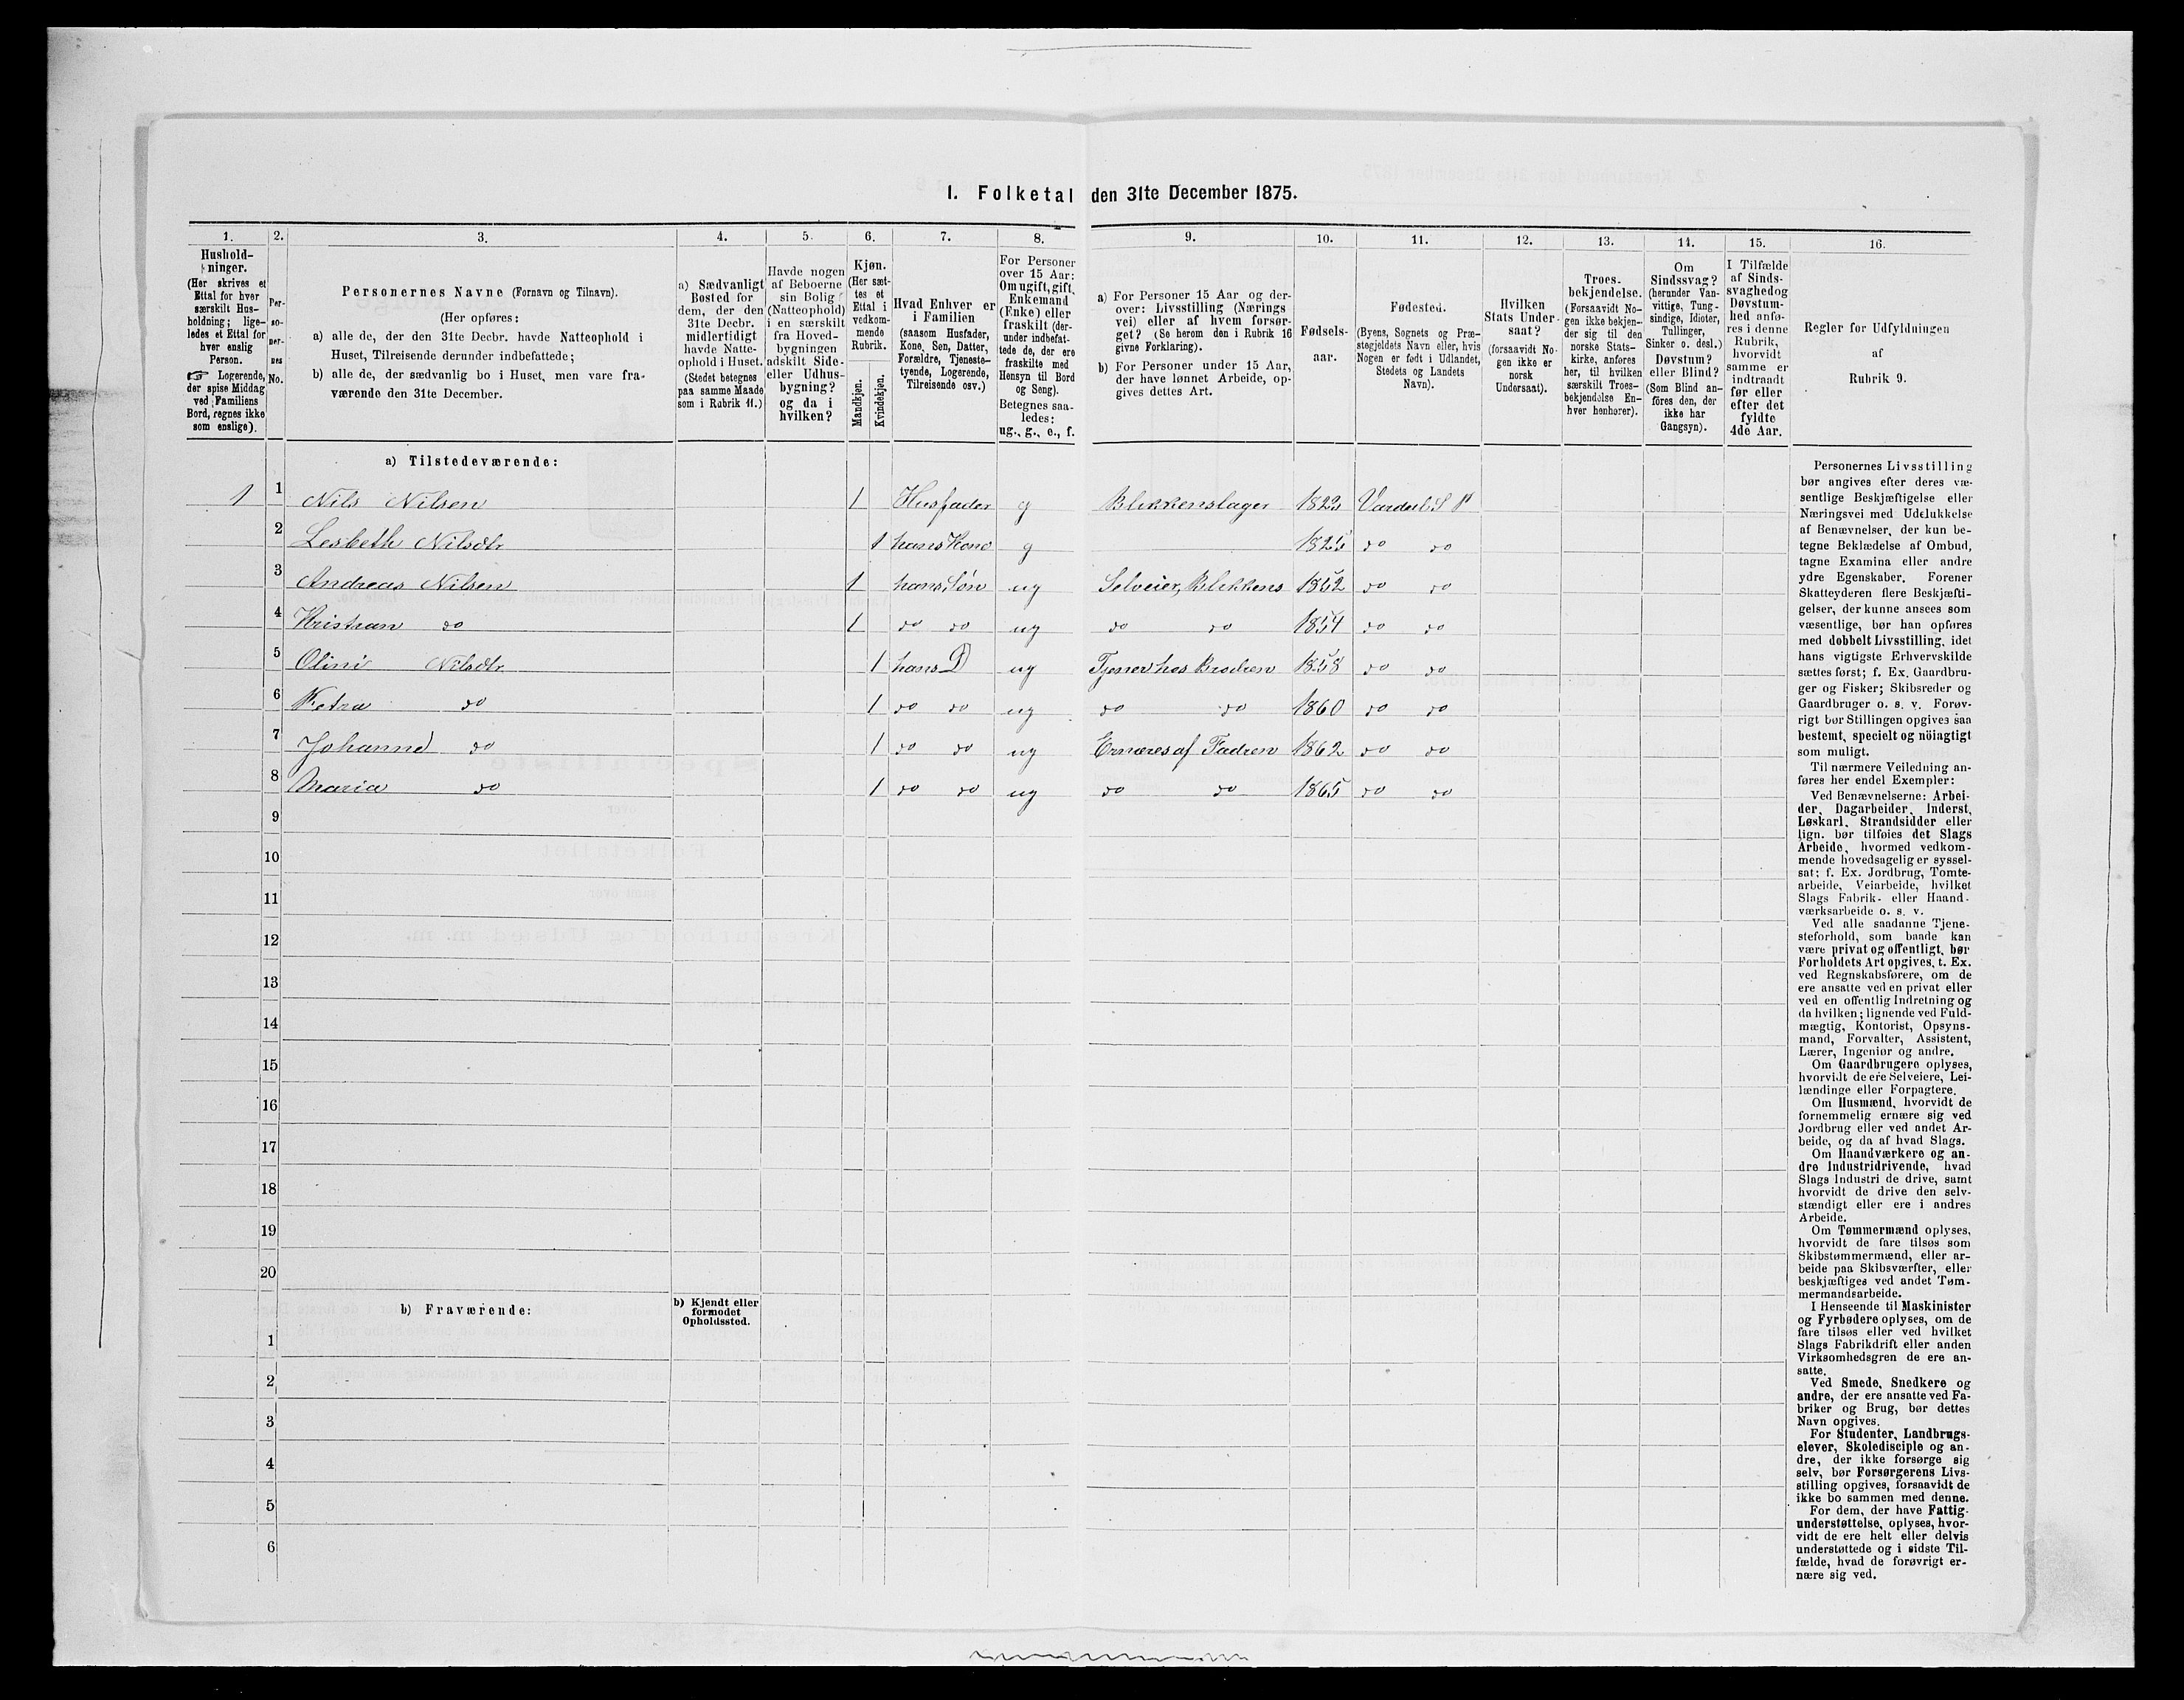 1. Folketal den 31te December 1875.
1. 2. 3. 4. 5. 6. 7. 8. 9. 10. 11. 12. 13. 14. 15. 16.
Hushold-
ninger.
(Her skrives et
Ettal for hver
særskilt Hus-
holdning; lige-
ledes et Ettal for
hver enslig
Person.
☞ Logerende,
der spise Middag
ved Familiens
Bord, regnes ikke
som enslige).
Per-
so-
ner-
nes
No.
Personernes Navne (Fornavn og Tilnavn).
(Her opføres:
a) alle de, der den 31te Decbr. havde Natteophold i
Huset, Tilreisende derunder indbefattede;
b) alle de, der sædvanlig bo i Huset, men vare fra-
værende den 31te December.
a) Sædvanligt
Bosted for
dem, der den
31te Decbr.
midlertidigt
havde Natte-
ophold i Huset.
(Stedet betegnes
paa samme Maade
som i Rubrik 11.)
Havde nogen
af Beboerne
sin Bolig
(Natteophold)
i en særskilt
fra Hoved-
bygningen
adskilt Side-
eller Udhus-
bygning?
og da i
hvilken?
Kjøn.
(Her sæt-
tes et
Ettal i
vedkom-
mende
Rubrik.
Mandkjøn.
Kvindekjøn.
Hvad Enhver er
i Familien
(saasom Husfader,
Kone, Søn, Datter,
Forældre, Tjeneste-
tyende, Logerende,
Tilreisende osv.)
For Personer
over 15 Aar:
Om ugift, gift,
Enkemand
(Enke) eller
fraskilt (der-
under indbefat-
tede de, der ere
fraskilte med
Hensyn til Bord
og Seng).
Betegnes saa-
ledes:
ug., g., e., f.
a) For Personer 15 Aar og der-
over: Livsstilling (Nærings-
vei) eller af hvem forsør-
get? (Se herom den i Rubrik 16
givne Forklaring).
b) For Personer under 15 Aar,
der have lønnet Arbeide, op-
gives dettes Art.
Fødsels-
aar.
Fødested.
(Byens, Sognets og Præ-
stegjeldets Navn eller, hvis
Nogen er født i Udlandet,
Stedets og Landets
Navn).
Hvilken
Stats Under-
saat?
(forsaavidt No-
gen ikke er
norsk
Undersaat).
Troes-
bekjendelse.
(Forsaavidt No-
gen ikke bekjen-
der sig til den
norske Stats-
kirke, anføres
her, til hvilken
særskilt Troes-
bekjendelse En-
hver henhører).
Om
Sindssvag?
(herunder Van-
vittige, Tung-
sindige, Idioter,
Tullinger,
Sinker o. desl.)
Døvstum?
eller Blind?
(Som Blind an-
føres den, der
ikke har
Gangsyn).
I Tilfælde
af Sinds-
svaghed og
Døvstum-
hed anfø-
res i denne
Rubrik,
hvorvidt
samme er
indtraadt
før eller
efter det
fyldte
4de Aar.
Regler for Udfyldningen
af
Rubrik 9.
a) Tilstedeværende:
1 1 Nils Nilsen 1 Husfader g Blikkenslager 1823 Vardal S P
2 Lesbeth Nilsdtr 1 hans Kone g 1825 do do
3 Andreas Nilsen 1 hans Søn ug Selveier, Blikkens 1852 do do
4 Kristian do 1 do do ug do do 1854 do do
5 Olini Nilsdtr 1 hans D ug Tjener hos Brodren 1858 do do
6 Petra do 1 do do ug do do 1860 do do
7 Johanne do 1 do do ug Ernæres af Fadren 1862 do do
8 Maria do 1 do do ug do do 1865 do do
9
10
11
12
13
14
15
16
17
18
19
20
b) Fraværende:
b) Kjendt eller
formodet
Opholdssted.
1
2
3
4
5
6
Personernes Livsstilling
bør angives efter deres væ-
sentlige Beskjæftigelse eller
Næringsvei med Udelukkelse
af Benævnelser, der kun be-
tegne Beklædelse af Ombud,
tagne Examina eller andre
ydre Egenskaber. Forener
Skatteyderen flere Beskjæfti-
gelser, der kunne ansees som
væsentlige, bør han opføres
med dobbelt Livsstilling, idet
hans vigtigste Erhvervskilde
sættes først; f. Ex. Gaardbru-
ger og Fisker; Skibsreder og
Gaardbruger o. s. v. Forøv-
rigt bør Stillingen opgives saa
bestemt, specielt og nöiagtigt
som muligt.
Til nærmere Veiledning an-
føres her endel Exempler:
Ved Benævnelserne: Arbei-
der, Dagarbeider, Inderst,
Løskarl, Strandsidder eller
lign. bør tilføies det Slags
Arbeide, hvormed vedkom-
mende hovedsagelig er syssel-
sat; f. Ex. Jordbrug, Tomte-
arbeide, Veiarbeide, hvilket
Slags Fabrik- eller Haand-
værksarbeide o. s. v.
Ved alle saadanne Tjene-
steforhold, som baade kan
være privat og offentligt, bør
Forholdets Art opgives, t. Ex.
ved Regnskabsførere, om de
ere ansatte ved en privat eller
ved en offentlig Indretning og
da hvilken; lignende ved Fuld-
mægtig, Kontorist, Opsyns-
mand, Forvalter, Assistent,
Lærer, Ingeniør og andre.
Om Gaardbrugere oplyses,
hvorvidt de ere Selveiere, Lei-
lændinge eller Forpagtere.
Om Husmænd, hvorvidt de
fornemmelig ernære sig ved
Jordbrug eller ved andet Ar-
beide, og da af hvad Slags.
Om Haandværkere og an-
dre Industridrivende, hvad
Slags Industri de drive, samt
hvorvidt de drive den selv-
stændigt eller ere i andres
Arbeide.
Om Tømmermænd oplyses,
hvorvidt de fare tilsøs som
Skibstømmermænd, eller ar-
beide paa Skibsværfter, eller
beskjæftiges ved andet Tøm-
mermandsarbeide.
I Henseende til Maskinister
og Fyrbødere oplyses, om de
fare tilsøs eller ved hvilket
Slags Fabrikdrift eller anden
Virksomhedsgren de ere an-
satte.
Ved Smede, Snedkere og
andre, der ere ansatte ved Fa-
briker og Brug, bør dettes
Navn opgives.
For Studenter, Landbrugs-
elever, Skoledisciple og an-
dre, der ikke forsørge sig
selv, bør Forsørgerens Livs-
stilling opgives, forsaavidt de
ikke bo sammen med denne.
For dem, der have Fattig-
understøttelse, oplyses, hvor-
vidt de ere helt eller delvis
understøttede og i sidste Til-
fælde, hvad de forøvrigt er-
nære sig ved.